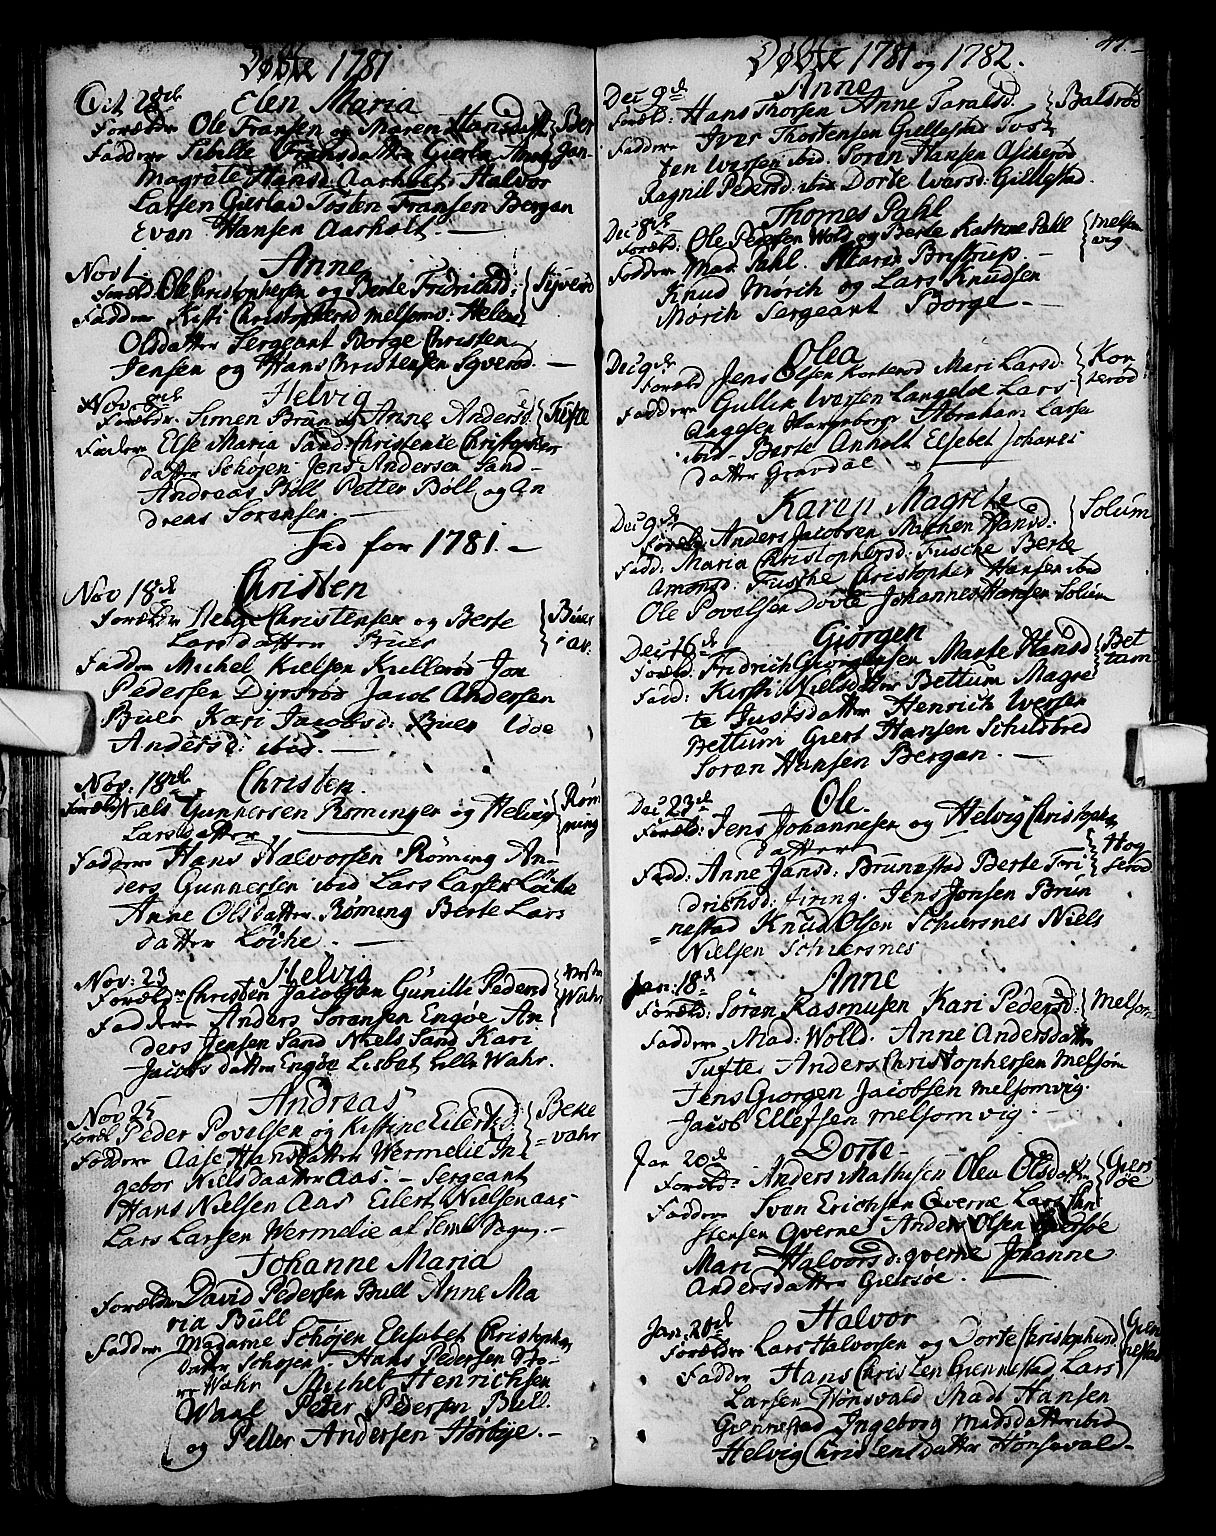 Døbte 1781
Oct 28de Elen Maria
Forældre Ole Fransen og Maren Hansdatt Ber
Faddere Sibille Gierlø Jan-
Magrete Hansd: Aarholt Halvor
Larsen Gierløe Tosten Fransen Bergan
Even Hansen Aarholt. —
Nov 1 Anne
Foræld: Ole Christophersen og Berte Fridrichsd: Syverød
Faddere Kisti Christophersd melsomv: Helene
Olsdatter Sergeant Borge Christen
Jensen og Hans Christensen Syverød. —
Nov Helvig
Foræld: Simen Brun og Anne Andersd Tufte
Fadere Else Maria Sand Christence Christopher
datter Schøjen Jens Andersen Sand-
Andreas Böll Petter Böll og An
dreas Sørensen. —
Lad for 1781. —
Nov 18de Christen
Forældre Helge Christensen og Berte Buer
Larsdatter Buer i av:
Faddere Michel Kielsen Kullerød Jon
Pedersen Dyrsrød Jacob Andersen
Buer Kari Jacobsd: Buer
Andersd: ibid. —
Nov: 18de Christen.
Foræld Niels Gunnersen Rominger og Helvig Röm
Larsdatter ming
Faddere Hans Halvorsen Röming An-
ders Gunnersen ibid Lars Larsen Löike
Anne Olsdatter Röming Berte Lars
datter Löike. —
Nov: 23 Helvig
Forældre Christen Jacobsen Gunille Pedersd
Wahr
Faddere Anders Sørensen Engøe An
ders Jensen Sand Niels Sand Kari
Jacobsdatter Engøe Lisbet Lille Wahr.
Nov 25 Andreas
Foræl: Peder Povelsen og Kistine Eilertsd: Beke
Faddere Aase Hansdatter Wermelie In =vahr
gebor Nielsdaatter Aas. — Sergeant
Hans Nielsen Aas Eilert Nielsen aas
Lars Larsen Wermelie at
Johanne Maria
Forældre David Pedersen Bull Anne Ma
ria Büll
Faddere Madame Schøjen Elisabet Christopher
datter Schøjen. Hans Pedersen Sto-
re Wahr Michel Henrichsen
Peter Pedersen Bull.
og Petter Andersen Hörbye. —
Døbte 1781 og 1782.
Dec 9de Anne
Foræld: Hans Thorsen Anne Taralsd. Balsrød
Faddere Iver Thortensen Gillestad Tos
ten Iversen ibid. Sören Hansen Ascherød
Ragnil Pedersd: ibid Dorte Iversd: Gillestad.
Dec 8de Thomes Pahl
Foræld: Ole Pedersen Wold og Berte Katrine Pahl melsom
vig
Faddere Mad. Pahl. Maria Bristrup. —
Knud Mørch og Lars Knudsen
Mørch Sergeant Borge —
Dec 9de Olea
Foræld Jens Olsen Korterød Mari Larsd. Kor
terød
Faddere Gullik Iversen Langelöe Lars
Aagesen Abraham Larse
ibid — Berte Anholt Elsebet Johanes
datter Gravdal
Dec 9de Karen Magrete
Foræld: Anders Jacobsen Michen Hansd: Solum
Fadd: Maria Christophersd: Fusche Berte
Amonsd: Fusche Christopher Hansen ibid
Ole Povelsen Dovle Johannes Hansen Solum
Dec 16de Giørgen
Foræld: Fridrich Giørgensen Marte Hansd Bet
tum
Fadd: Kirsti Nielsdatter Bettum Magre
te Justsdatter Henrich Iversen
Bettum Giert Hansen Schildbred
Soren Hansen Bergan. —
Dec 23de Ole.
Foræld: Jens Johannesen og Helvig Christopher
datter Hog
Fadd: Anne Jansd: Brunestad Berte Fri
drichsd: Firing. Jens Jensen Brun
=nestad Knud Olsen Schiersnes Niels
Nielsen Schiersnes
Jan: 18de Anne
Foræld: Søren Rasmusen Kari Pedersd: Melsom
Faddere Mad: Wolld. Anne Andersdatter
Tufte Anders Christophersen Melsom
Jens Giorgen Jacobsen melsomvig.
Jacob Ellefsen melsomvig. —
Jan 20de Dorte
Foræld: Anders Mathisen Olea Olsdatter Giers
øe
Faddere Sven Erichsen Qverne Lars
stensen Qverne Anders Olsen Giersøe
Mari Halvorsd: qverne Johanne
Andersdatter Giersøe.
Jan: 20de Halvor
Forældre Lars Halvorsen og Dorte Christophersd: Gien
nestad
Faddere Hans Christen Giennestad Lars
Larsen Hönsvald Mads Hansen
Giennestad Ingeborg Madsdatter ibid
Helvig Christensdatter Hönsevald —